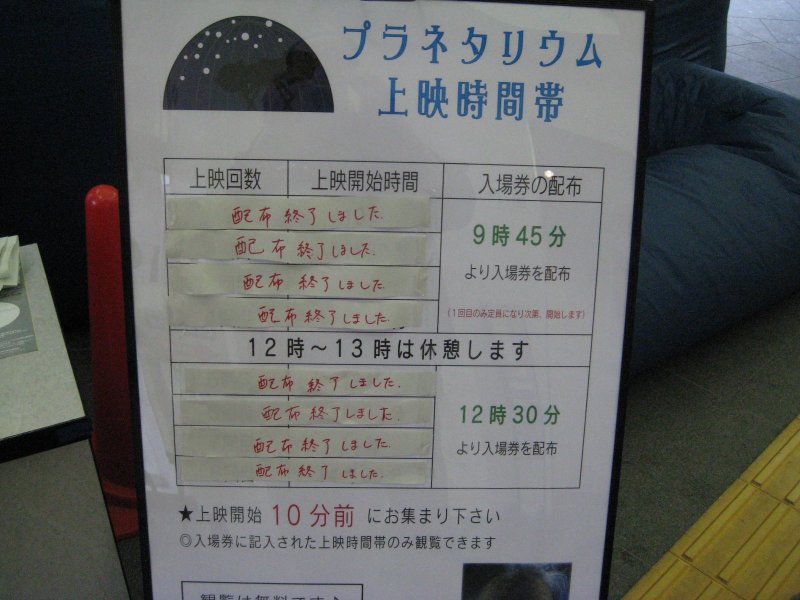 プラネタリウム
上映時間帯
上映回数 上映開始時間 入場券の配布
配布終了しました.
配布終了しました.
配布終了しました.
配布終了しました.
9時45分
より入場券を配布
(1回目のみ定員になり次第、開始します)
12時～13時は休憩します
配布終了しました.
配布終了しました.
配布終了しました.
配布終了しました.
12時30分
より入場券を配布
★上映開始 10分前 にお集まり下さい
◎入場券に記入された上映時間帯のみ観覧できます
観覧は無料です